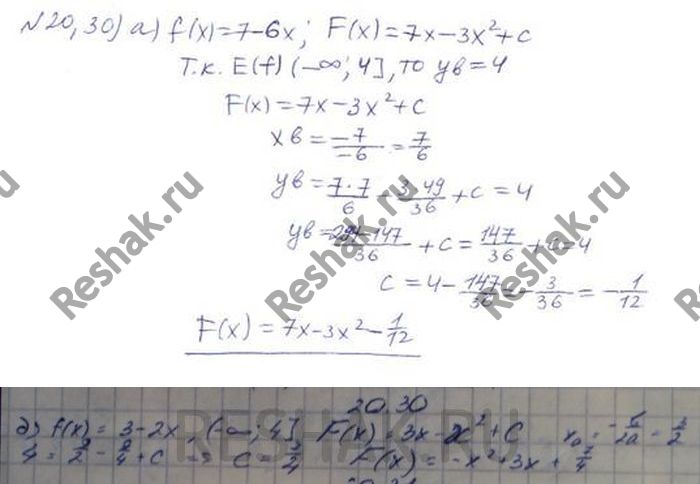 N20,30) а) f(x)=7-6x; F(x)=7x-3x²+c
Т.к. E(f) (-∞; 4], то yв=4
F(x)=7x-3x²+c
xв = -7/-6 = 7/6
yв = 7·7/6 - 3·49/36 + c = 4
yв = 294-147/36 + c = 147/36 + c = 4
c = 4 - 147/36 = - 3/36 = - 1/12
F(x) = 7x-3x² - 1/12
Reshak.ru
Reshak.ru
Reshak.ru
RESHAK.RU
20.30
f(x) = 3-2x, (-∞; 4] F(x) = 3x - x² + C x₀ = -b/2a = 3/2
F(x) = -x² + 3x + 7/4